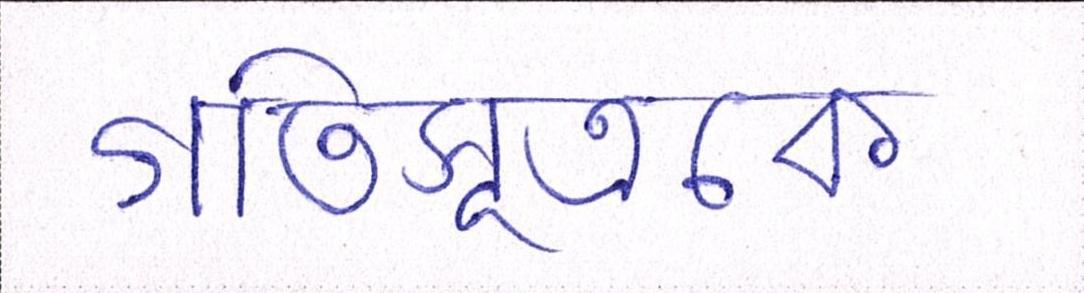 গতিসূত্রকে